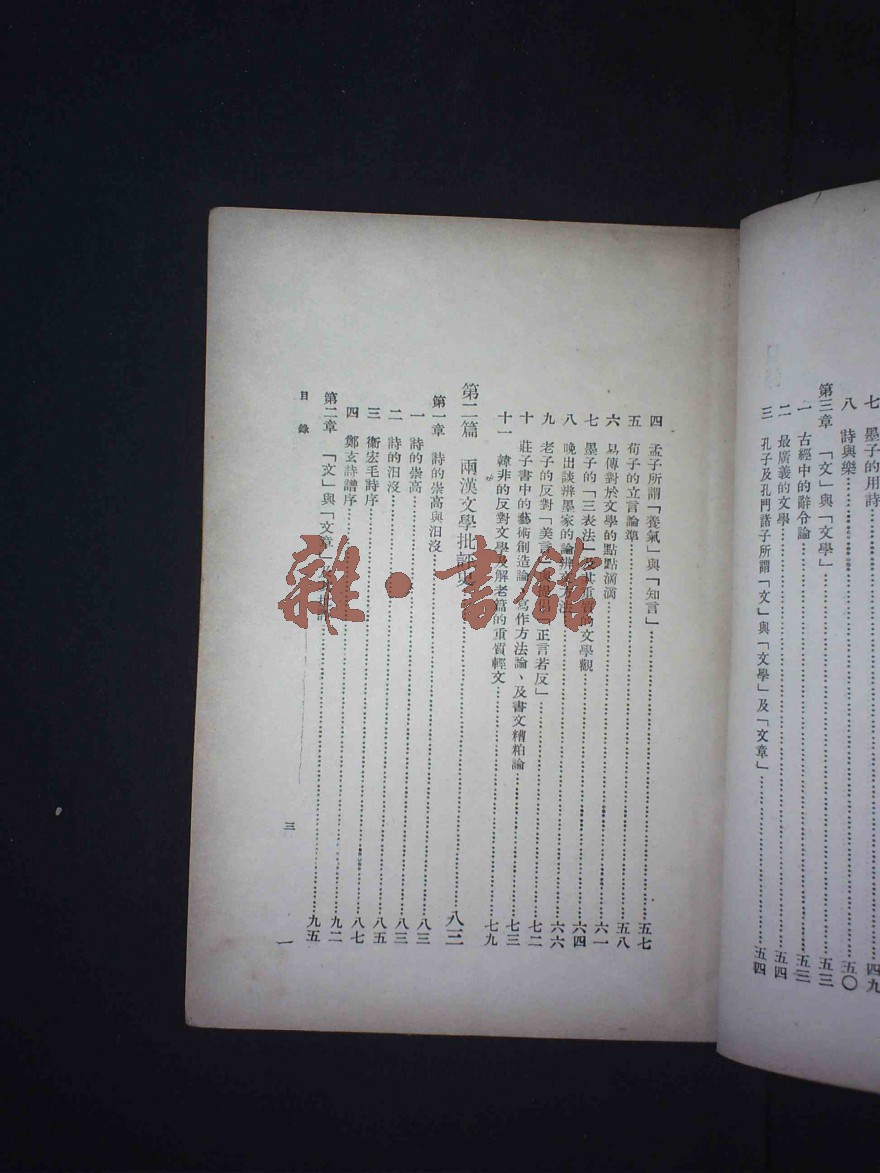 七 墨子的用詩 四九
八 詩與樂 五〇
第三章 「文」與「文學」 五三
一 古經中的辭令論 五三
二 最廣義的文學 五四
三 孔子及孔門諸子所謂「文」與「文學」及「文章」 五四
四 孟子所謂「養氣」與「知言」 五七
五 荀子的立言論準 五八
六 易傳對於文學的點點滴滴 六一
七 墨子的「三表法」及其重質的文學觀 六四
八 晚出談辨墨家的論辨方法 六六
九 老子的反對「美言」 正言若反」 七二
十 莊子書中的藝術創造論 寫作方法論、及書文糟粕論 七三
十一 韓非的反對文學及解老篇的重質輕文 七九
第二篇 兩漢文學批評史 八三
第一章 詩的崇高與汩沒 八三
一 詩的崇高 八三
二 詩的汩沒 八三
三 衞宏毛詩序 八五
四 鄭玄詩譜序 八七
第二章 「文」與「文章」 九二
九五
目錄
三
一
雜·書館